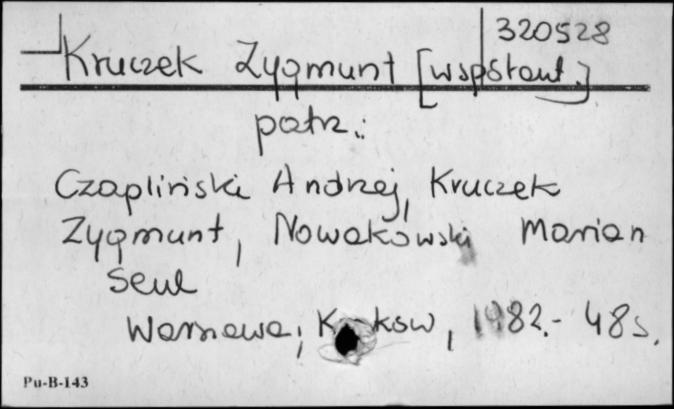 320528
Kruczek Zygmunt [współaut.]
patrz:
Czapliński Andrzej, Kruczek
Zygmunt, Nowakowski Marian
Seul
Warszawa; Kraków, 1982.- 48 s.
Pu-B-143